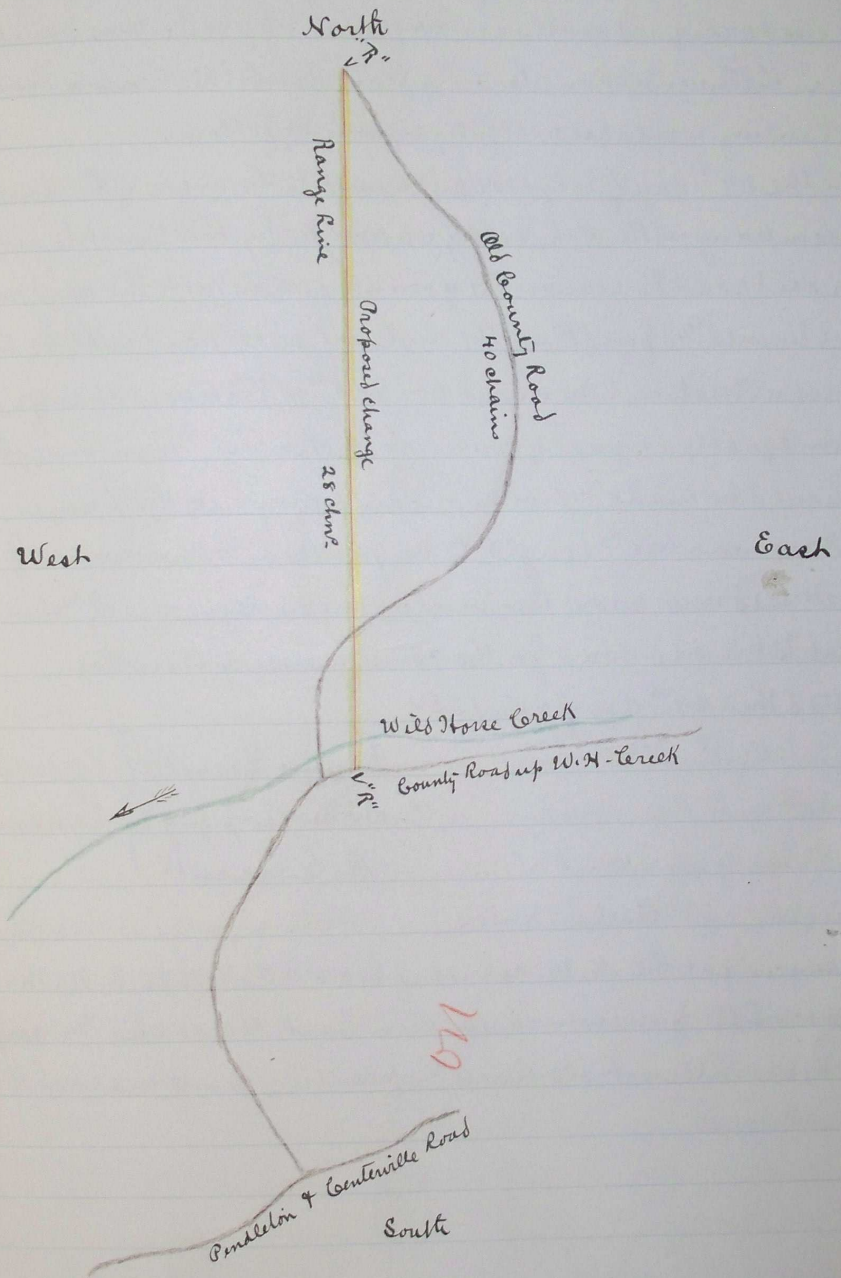 North
"R"
Range Line
Old County Road
40 chains
Proposed change
28 chns.
West
East
Wild Horse Creek
County Road up W. H. Creek
"R"
Pendleton & Centerville Road
South